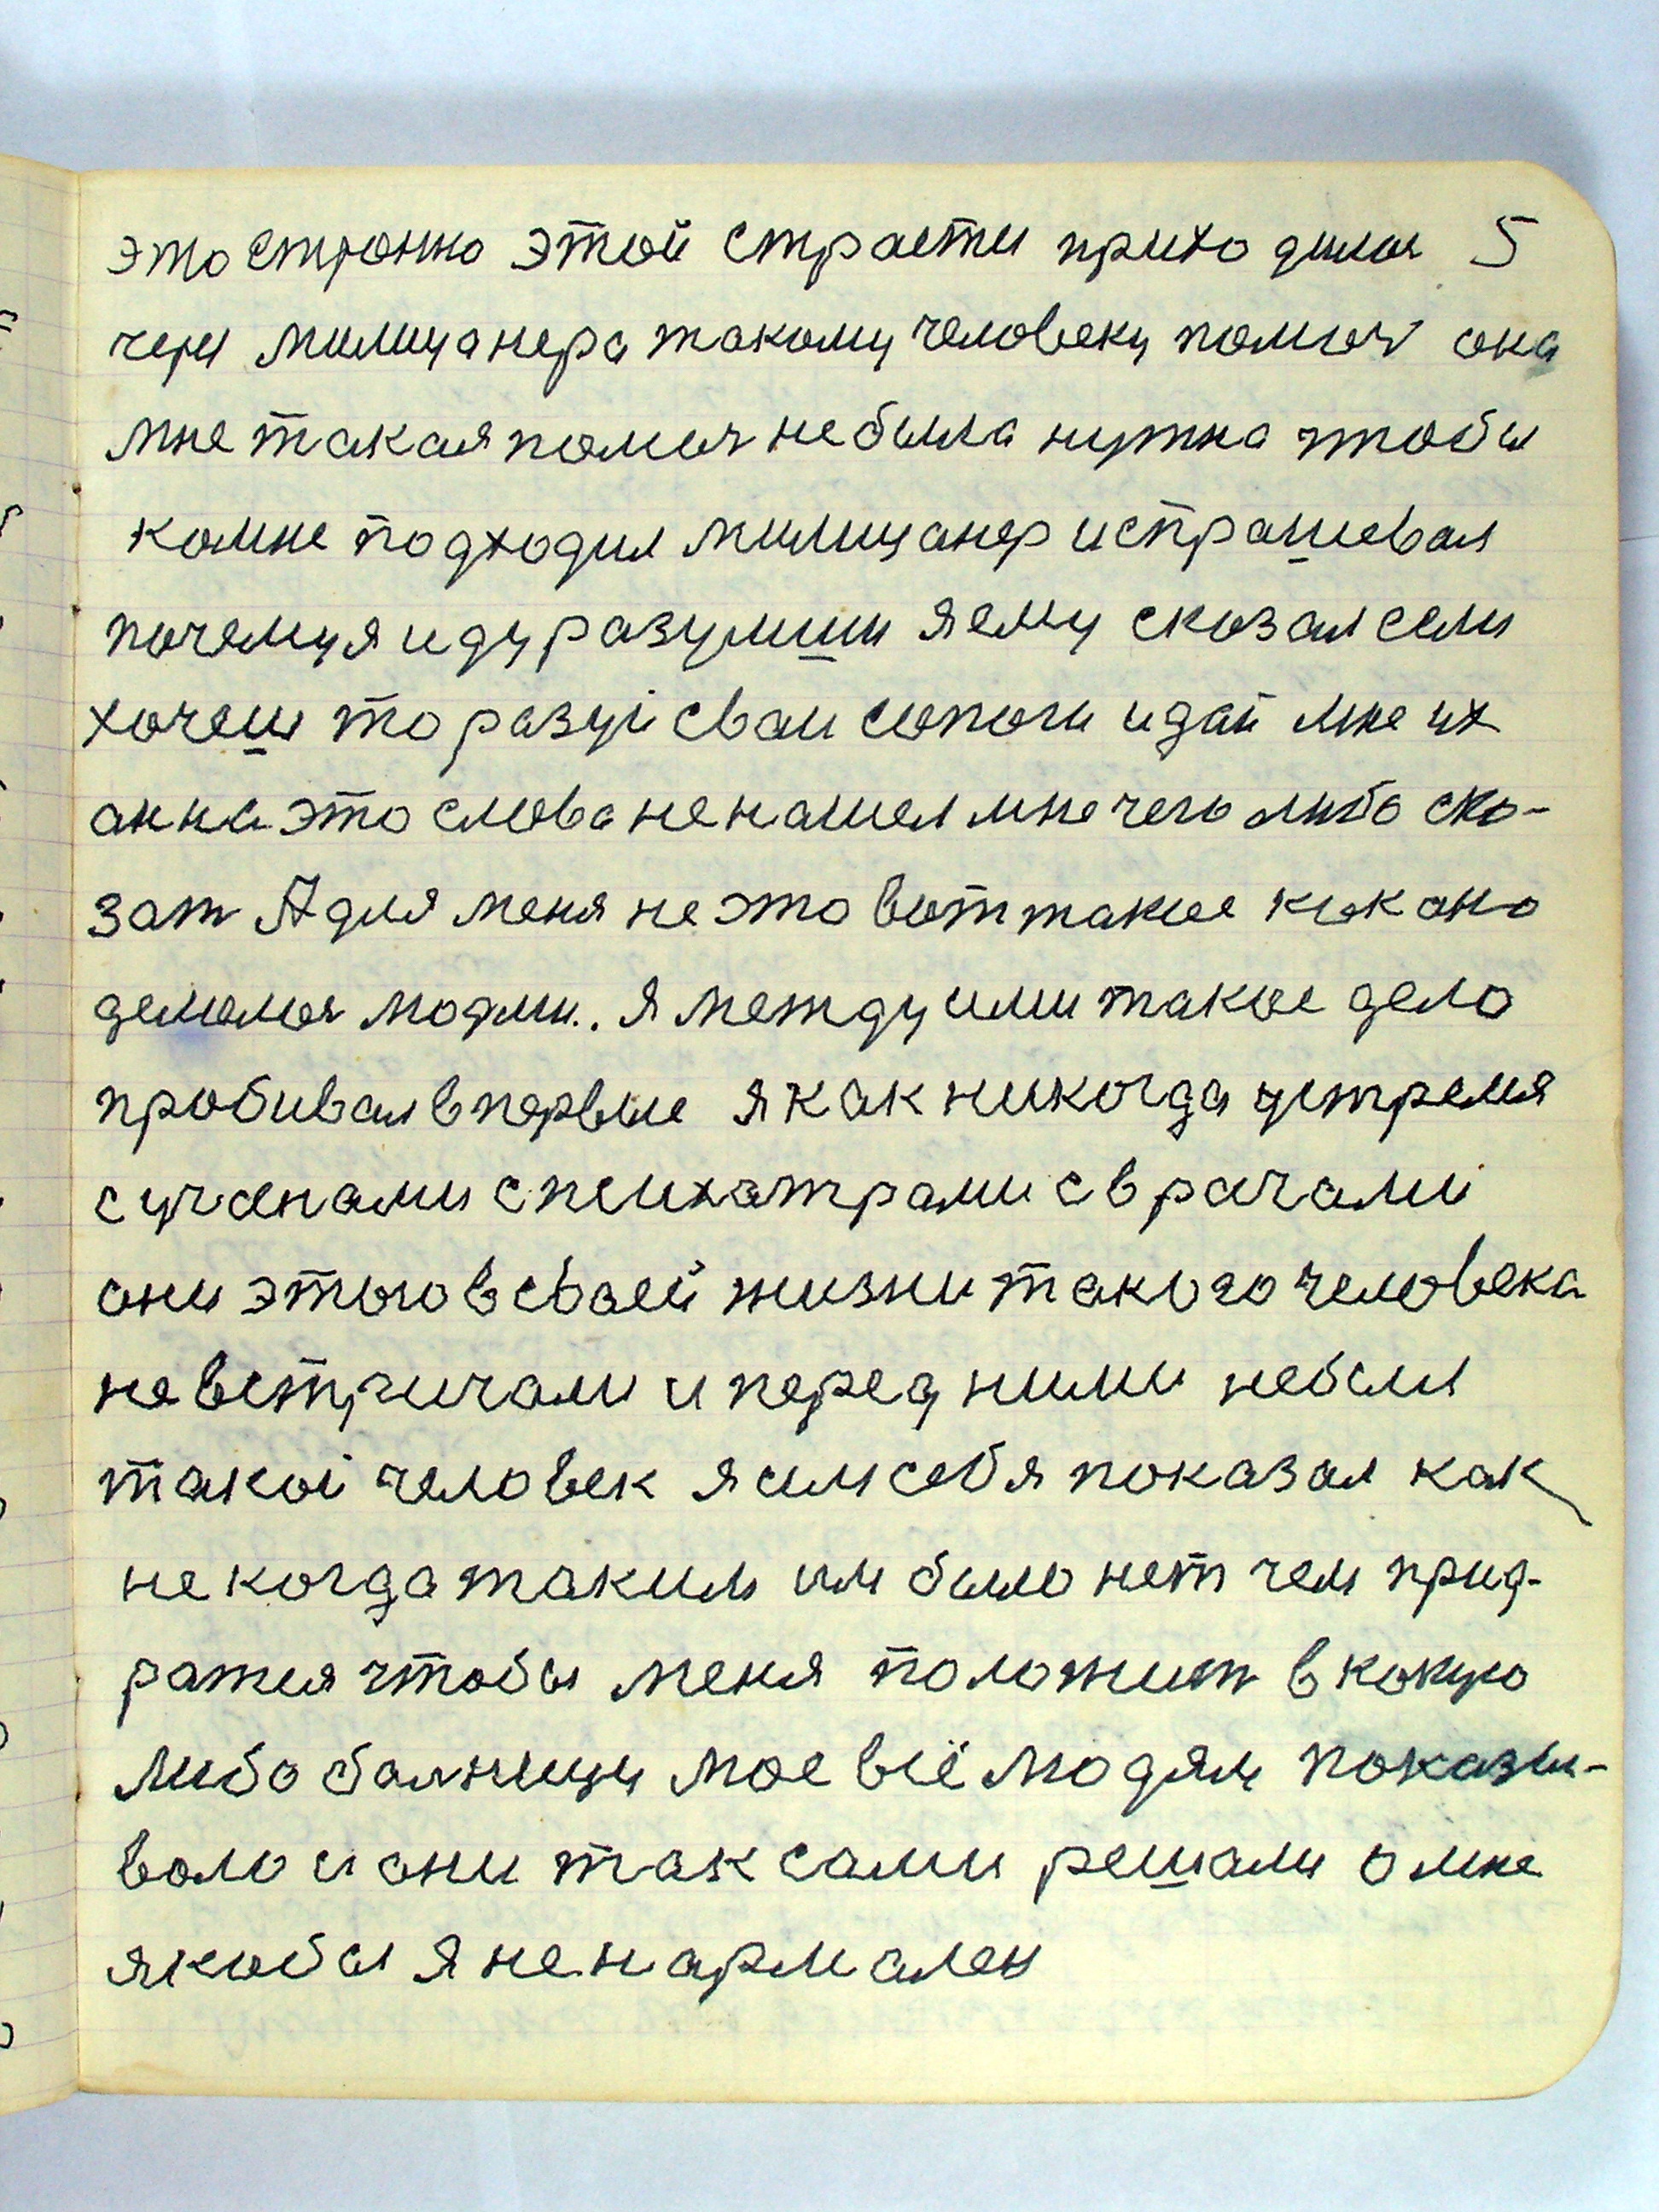 это стронно этой страсти приходилос 5
чери милицанера такому человеку помоч она
мне такая помоч небыла нужна чтобы
комне подходил милицанер испрашевал
почемуя иду разумши яему сказал если
хочеш то разуй сваи сопоги идай мне их
анна это слова ненашел мне чего либо ска-
зат А для меня не это вот такое как оно
делалос людми.. я между ими такое дело
пробивал впервые я как никогда устремя
с учонами спсихатрами сврачами
они этого в сваей жизни такого человека
невстричали и перед ними небыл
такой человек я сим себя показал как
не когда таким им было нет чем прид-
ратся чтобы меня положит в какую
либо балницу мое всё людям показы-
вало и они так сами решали о мне
якобы я ненармален